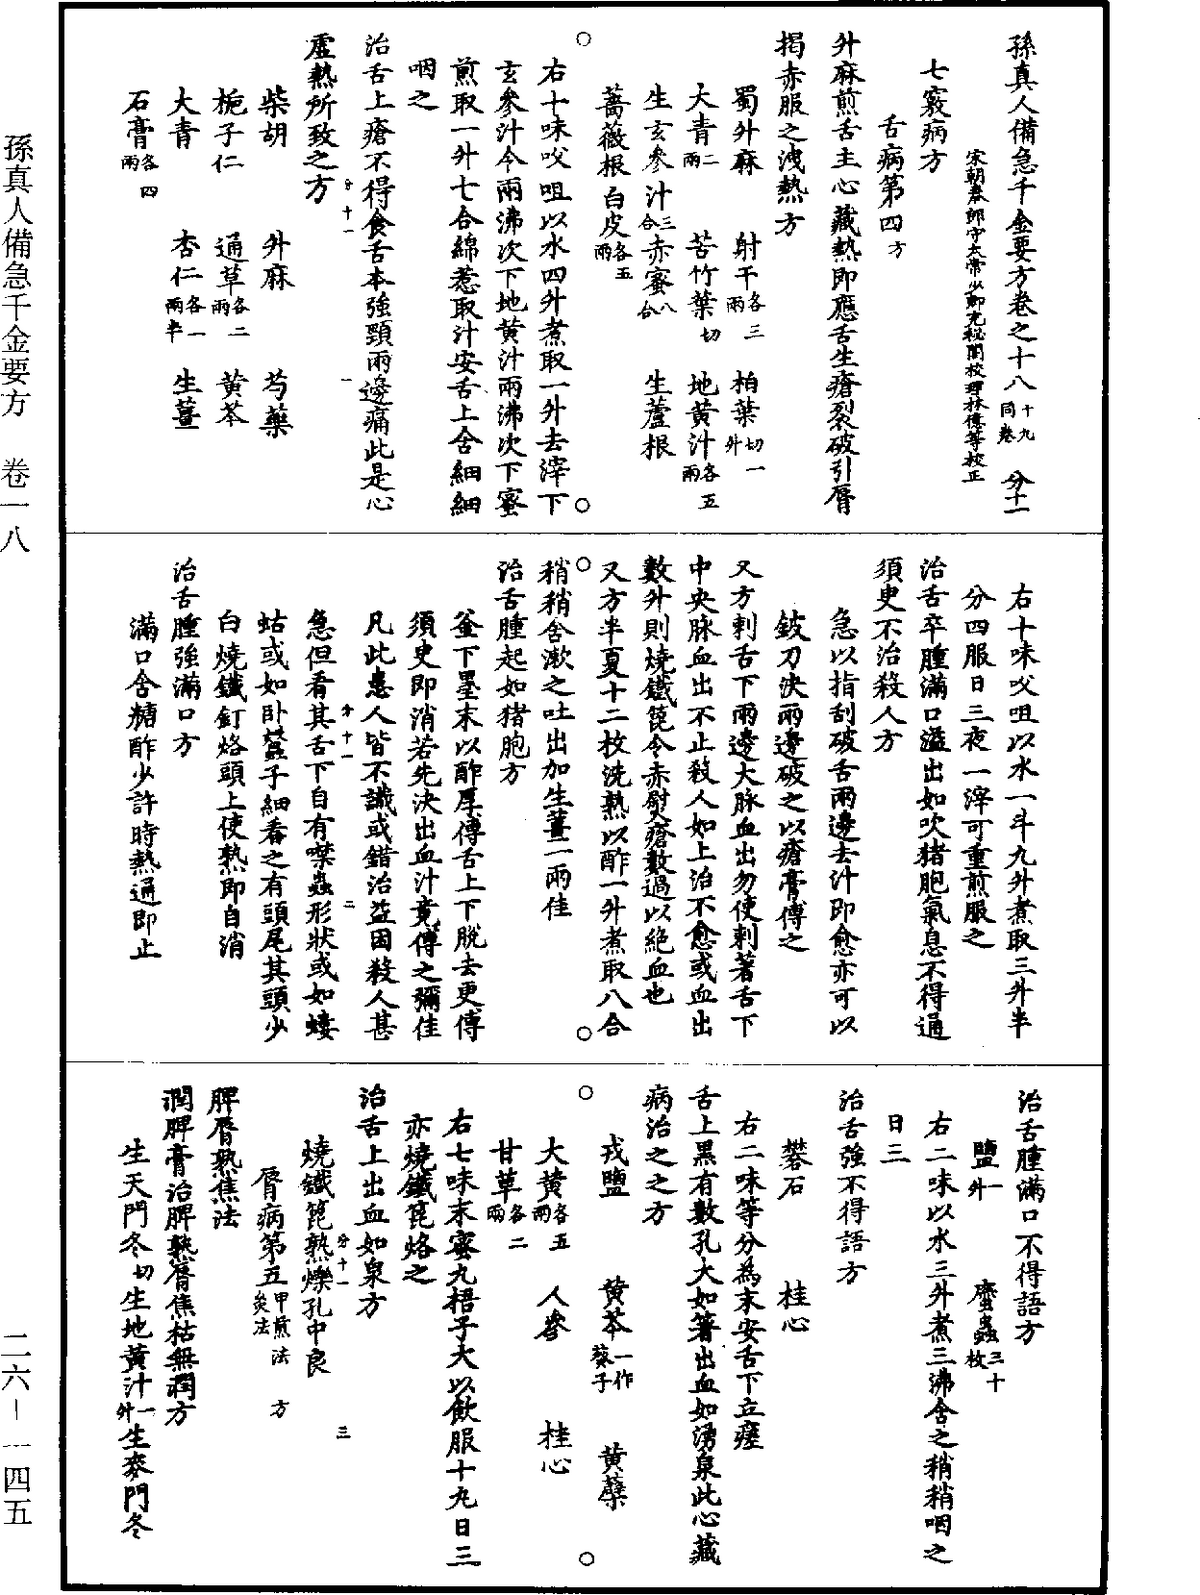 孫真人備急千金要方卷之十八 十九同卷 分十一
宋朝奉郎守太常少卿充秘閣校理林億等校正
七竅病方
舌病第四方
升麻煎舌主心藏熱即應舌生瘡裂破引脣
揭赤服之洩熱方
蜀升麻 射干各三兩 柏葉切一升
大青二兩 苦竹葉切 地黃汁各五兩
生玄參汁三合 赤蜜八合 生蘆根
薔薇根白皮各五兩
右十味㕮咀以水四升煮取一升去滓下
玄參汁令兩沸次下地黃汁兩沸次下蜜
煎取一升七合綿惹取汁安舌上含細細
咽之
治舌上瘡不得食舌本強頸兩邊痛此是心
分十一 一
虛熱所致之方
柴胡 升麻 芍藥
梔子仁 通草各二兩 黃芩
大青 杏仁各一兩半 生薑
石膏各四兩
右十味㕮咀以水一斗九升煮取三升半
分四服日三夜一滓可重煎服之
治舌卒腫滿口溢出如吹猪胞氣息不得通
須臾不治殺人方
急以指刮破舌兩邊去汁即愈亦可以
鈹刀決兩邊破之以瘡膏傅之
又方刺舌下兩邊大脉血出勿使刺著舌下
中央脉血出不止殺人如上治不愈或血出
數升則燒鐵篦令赤熨瘡數過以絕血也
又方半夏十二枚洗熟以酢一升煮取八合
稍稍含漱之吐出加生薑一兩佳
治舌腫起如猪胞方
釜下墨末以酢厚傅舌上下脫去更傅
須臾即消若先決出血汁竟傅之彌佳
凡此患人皆不識或錯治益困殺人甚
分十一 二
急但看其舌下自有噤蟲形狀或如螻
蛄或如臥蠶子細看之有頭尾其頭少
白燒鐵釘烙頭上使熟即自消
治舌腫強滿口方
滿口含糖酢少許時熱通即止
治舌腫滿口不得語方
鹽一升 䗪蟲三十枚
右二味以水三升煮三沸含之稍稍咽之
日三
治舌強不得語方
礬石 桂心
右二味等分為末安舌下立瘥
舌上黑有數孔大如箸出血如湧泉此心藏
病治之之方
戎鹽 黃芩一作葵子 黃蘗
大黃各五兩 人參 桂心
甘草各二兩
右七味末蜜丸梧子大以飲服十丸日三
亦燒鐵篦烙之
治舌上出血如泉方
燒鐵篦熟爍孔中良
分十一 三
脣病第五 甲煎法 方 灸法
脾脣熱焦法
潤脾膏治脾熱脣焦枯無潤方
生天門冬切 生地黃汁一升 生麥門冬
孫真人備急千金要方 卷一八
二六－一四五